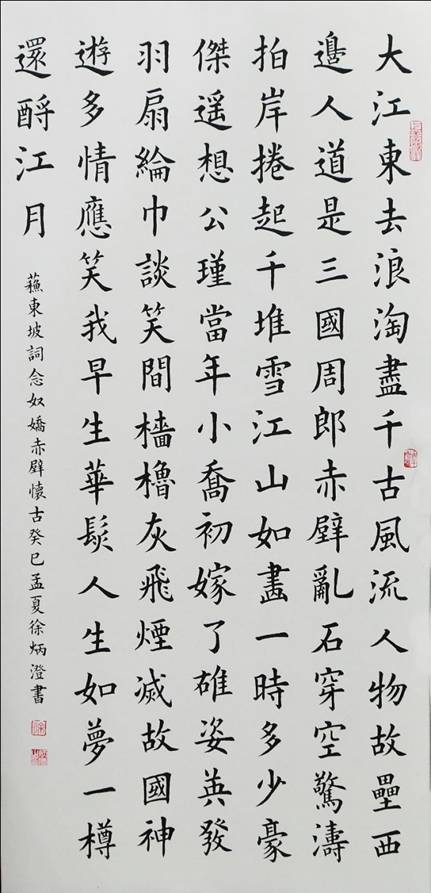 大江東去浪淘盡千古風流人物故壘西
邉人道是三國周郎赤壁亂石穿空驚濤
拍岸捲起千堆雪江山如畫一時多少豪
傑遥想公瑾當年小喬初嫁了雄姿英發
羽扇綸巾談笑間檣櫓灰飛煙滅故國神
遊多情應笑我早生華髮人生如夢一樽
還酹江月
蘓東坡詞念奴嬌赤壁懷古癸巳孟夏徐炳澄書